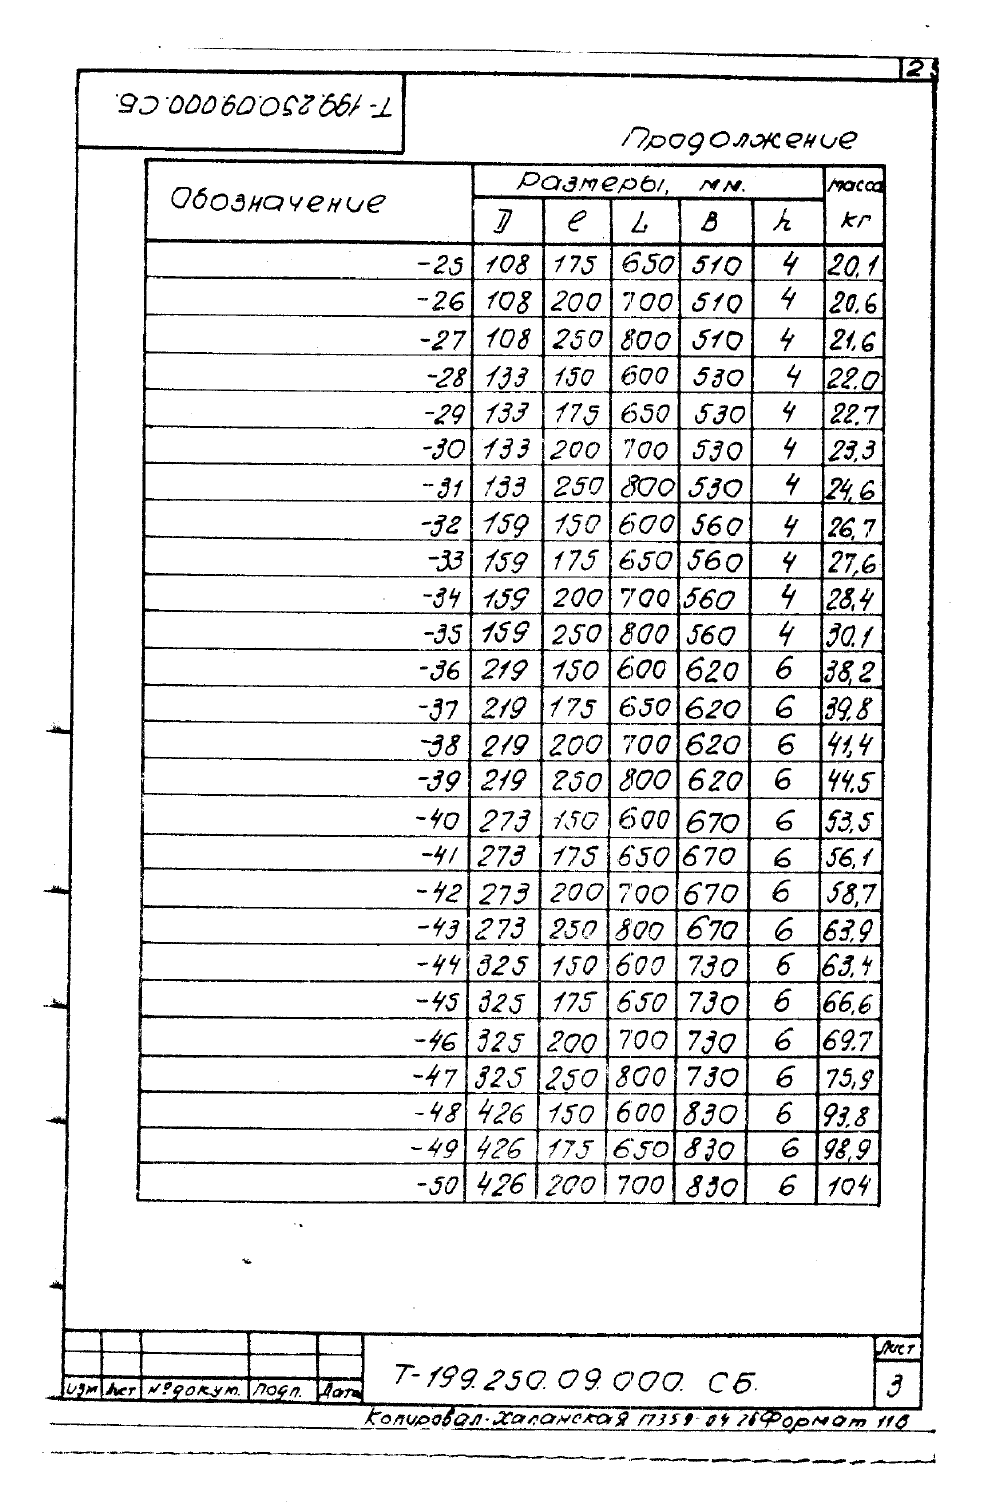 25
Т-199.250.09.000.СБ.
Продолжение
Обозначение Размеры, мм. масса кг
D ℓ L B h
-25 108 175 650 510 4 20,1
-26 108 200 700 510 4 20.6
-27 108 250 800 510 4 21,6
-28 133 150 600 530 4 22.0
-29 133 175 650 530 4 22.7
-30 133 200 700 530 4 23,3
-31 133 250 800 530 4 24,6
-32 159 150 600 560 4 26,7
-33 159 175 650 560 4 27,6
-34 159 200 700 560 4 28,4
-35 159 250 800 560 4 30.1
-36 219 150 600 620 6 38,2
-37 219 175 650 620 6 39.8
-38 219 200 700 620 6 41,4
-39 219 250 800 620 6 44.5
-40 273 150 600 670 6 53,5
-41 273 175 650 670 6 56,1
-42 273 200 700 670 6 58,7
-43 273 250 800 670 6 63,9
-44 325 150 600 730 6 63,4
-45 325 175 650 730 6 66,6
-46 325 200 700 730 6 69.7
-47 325 250 800 730 6 75,9
-48 426 150 600 830 6 93,8
-49 426 175 650 830 6 98,9
-50 426 200 700 830 6 104
Т-199.250.09.000. СБ.
Лист
3
Изм Лист № докум. Подп. Дата
Копировал- 17359-04 26 Формат 11в